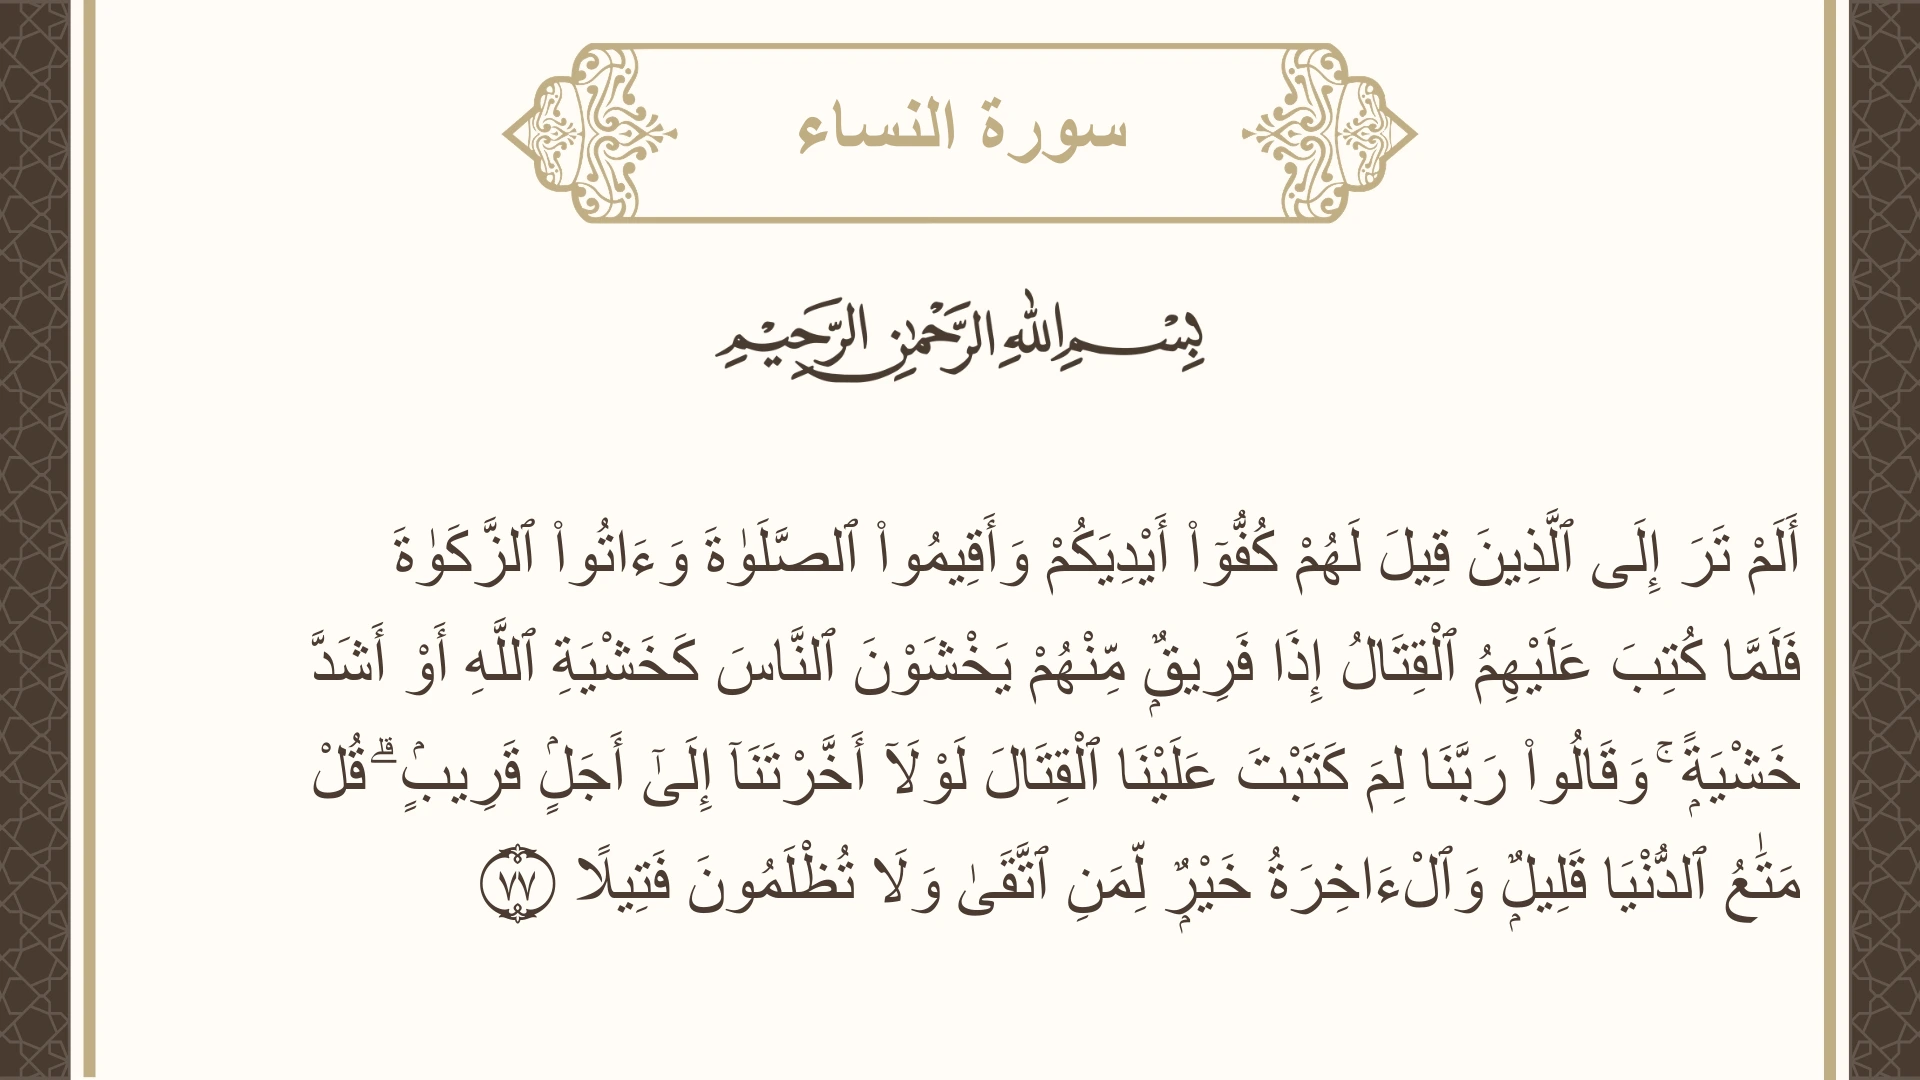 سورة النساء
بِسْمِ اللهِ الرَّحْمٰنِ الرَّحِيْمِ
أَلَمْ تَرَ إِلَى ٱلَّذِينَ قِيلَ لَهُمْ كُفُّوٓا۟ أَيْدِيَكُمْ وَأَقِيمُوا۟ ٱلصَّلَوٰةَ وَءَاتُوا۟ ٱلزَّكَوٰةَ
فَلَمَّا كُتِبَ عَلَيْهِمُ ٱلْقِتَالُ إِذَا فَرِيقٌۭ مِّنْهُمْ يَخْشَوْنَ ٱلنَّاسَ كَخَشْيَةِ ٱللَّهِ أَوْ أَشَدَّ
خَشْيَةًۭ ۚ وَقَالُوا۟ رَبَّنَا لِمَ كَتَبْتَ عَلَيْنَا ٱلْقِتَالَ لَوْلَآ أَخَّرْتَنَآ إِلَىٰٓ أَجَلٍۢ قَرِيبٍۢ ۗ قُلْ
مَتَـٰعُ ٱلدُّنْيَا قَلِيلٌۭ وَٱلْءَاخِرَةُ خَيْرٌۭ لِّمَنِ ٱتَّقَىٰ وَلَا تُظْلَمُونَ فَتِيلًا ٧٧